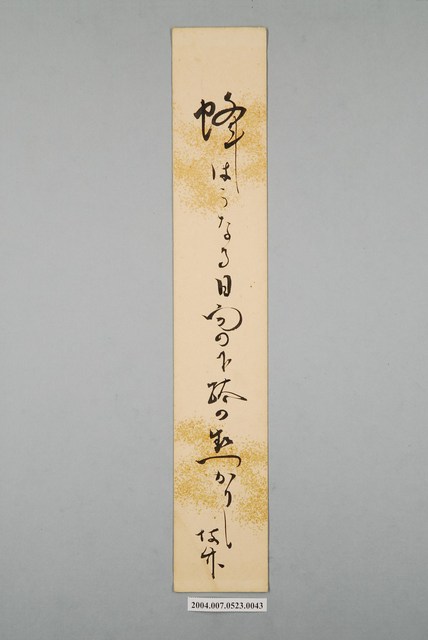 蜂はうなる日向の下路の
かりし
2004.007.0523.0043